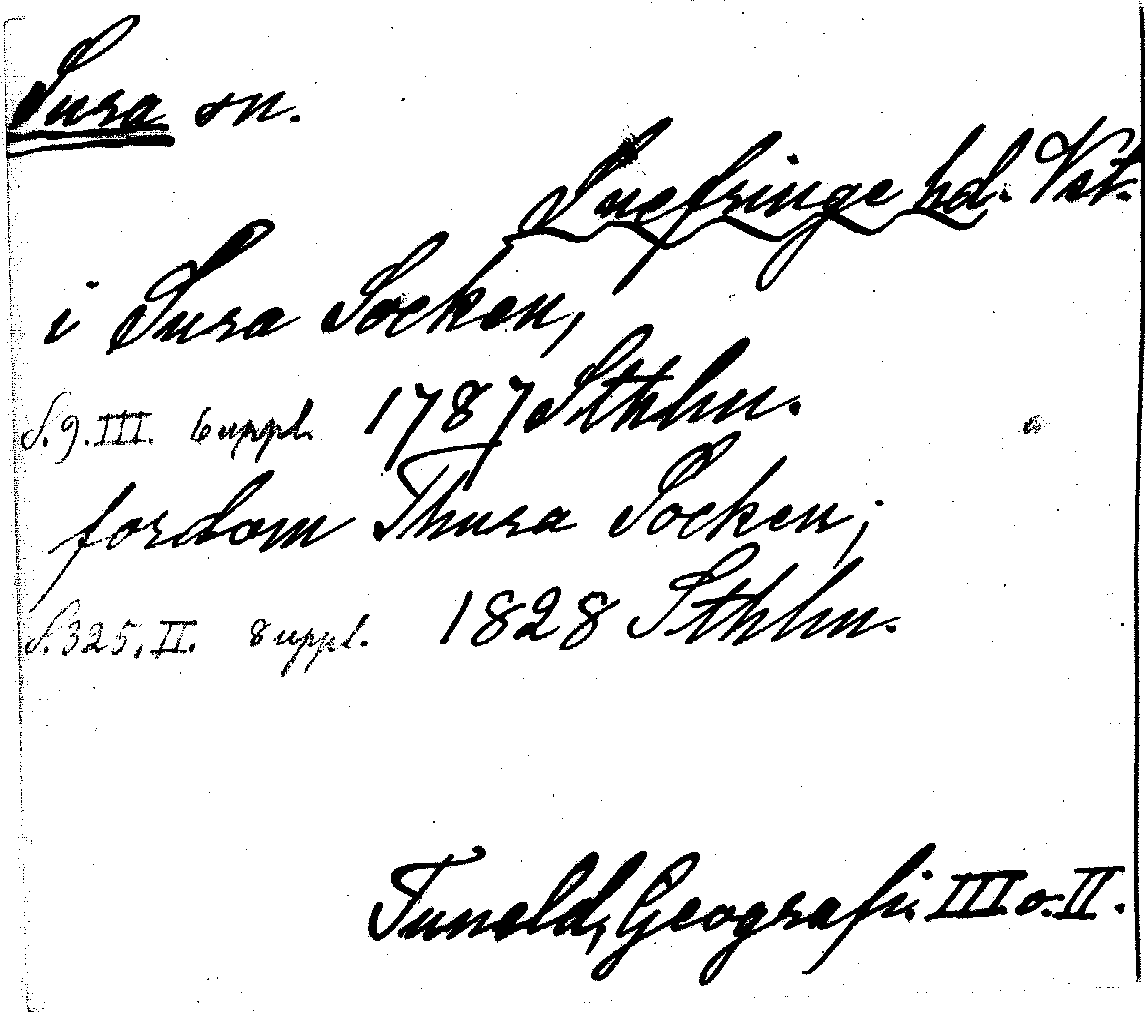 Sura sn.
Snefringe hd. Vst.
i Sura Socken,
S. 9. III. 6 uppl. 1787 Sthlm.
fordom Thura Socken;
S. 325, II. 8 uppl. 1828 Sthlm.
Tuneld, Geografi. III o. II.